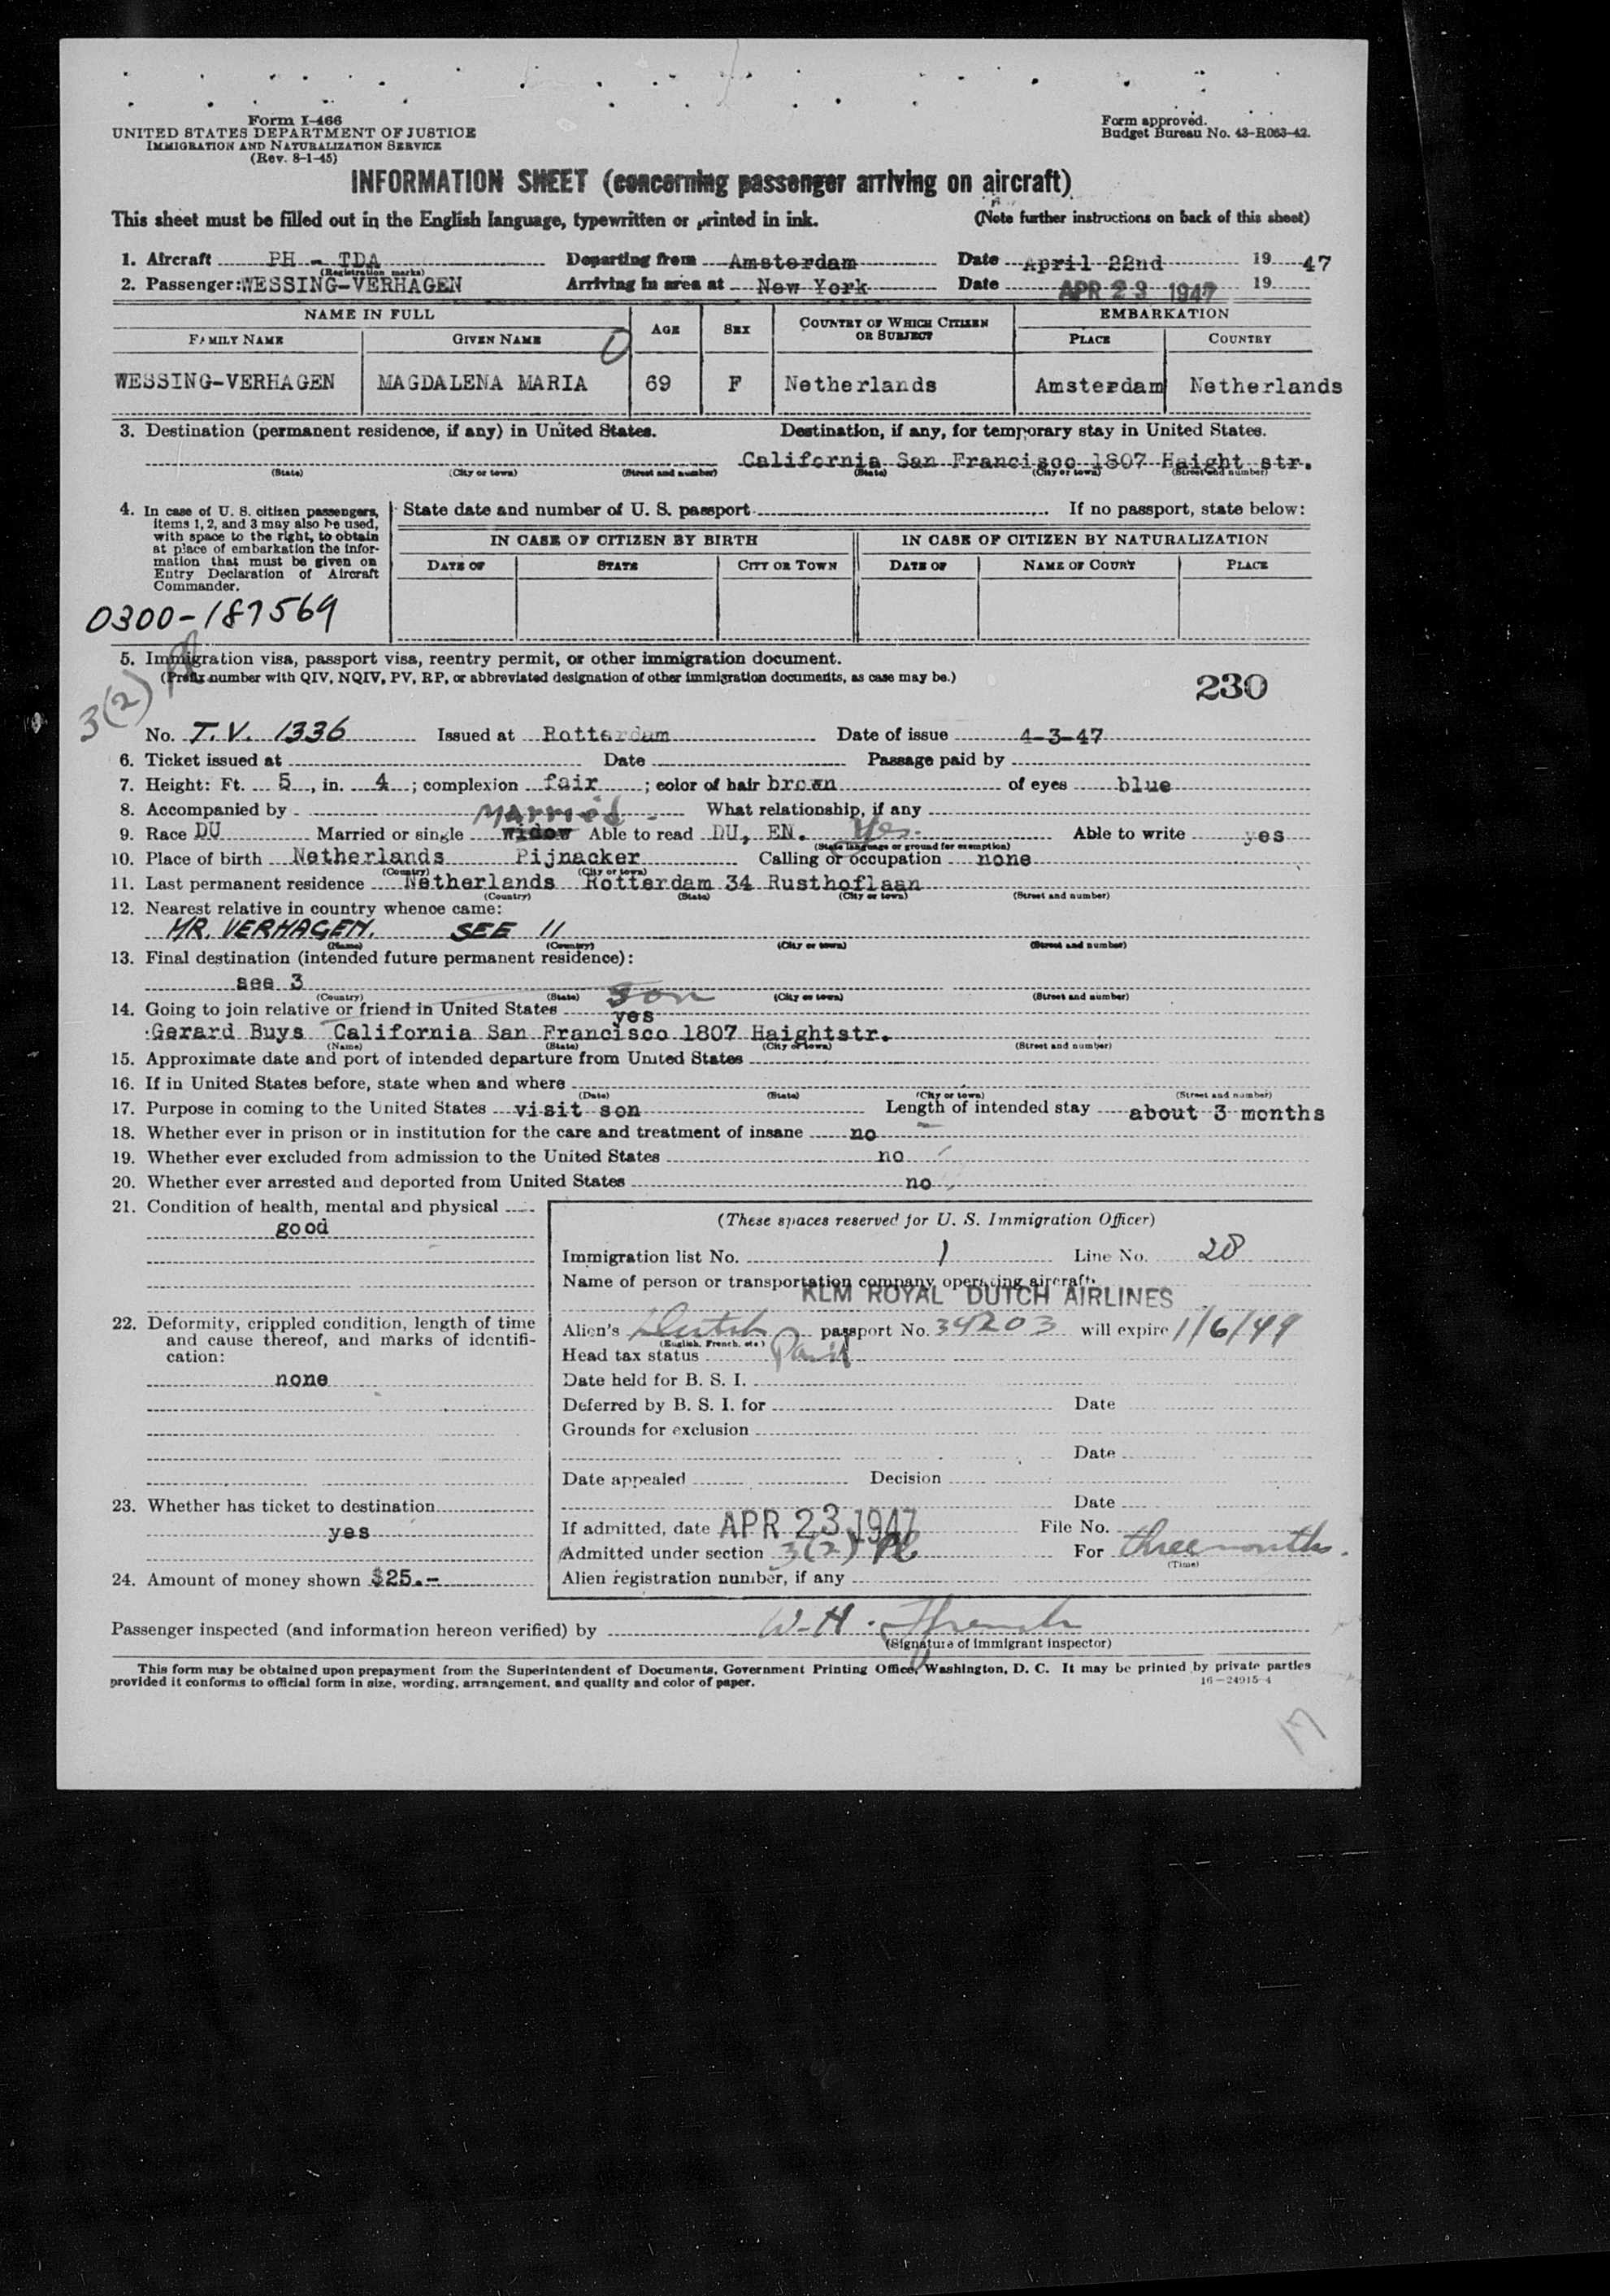 Form I-466
UNITED STATES DEPARTMENT OF JUSTICE
IMMIGRATION AND NATURALIZATION SERVICE
(Rev. 8-1-45)
Form approved.
Budget Bureau No. 43-R063-42.
INFORMATION SHEET (concerning passenger arriving on aircraft)
This sheet must be filled out in the English language, typewritten or printed in ink. (Note further instructions on back of this sheet)
1. Aircraft PH - TDA Departing from Amsterdam Date April 22nd 19 47
(Registration marks)
2. Passenger: WESSING-VERHAGEN Arriving in area at New York Date APR 23 1947 19
NAME IN FULL AGE SEX COUNTRY OF WHICH CITIZEN OR SUBJECT EMBARKATION
FAMILY NAME GIVEN NAME PLACE COUNTRY
WESSING-VERHAGEN MAGDALENA MARIA 69 F Netherlands Amsterdam Netherlands
3. Destination (permanent residence, if any) in United States. Destination, if any, for temporary stay in United States.
California San Francisco 1807 Haight str.
(State) (City or town) (Street and number) (State) (City or town) (Street and number)
4. In case of U. S. citizen passengers, items 1, 2, and 3 may also be used, with space to the right, to obtain at place of embarkation the information that must be given on Entry Declaration of Aircraft Commander.
State date and number of U. S. passport If no passport, state below:
IN CASE OF CITIZEN BY BIRTH IN CASE OF CITIZEN BY NATURALIZATION
DATE OF STATE CITY OR TOWN DATE OF NAME OF COURT PLACE
0300-187569
5. Immigration visa, passport visa, reentry permit, or other immigration document.
(Prefix number with QIV, NQIV, PV, RP, or abbreviated designation of other immigration documents, as case may be.)
230
3(2)
No. T.V. 1336 Issued at Rotterdam Date of issue 4-3-47
6. Ticket issued at Date Passage paid by
7. Height: Ft. 5, in. 4; complexion fair; color of hair brown of eyes blue
8. Accompanied by What relationship, if any
married
9. Race DU Married or single widow Able to read DU, EN. Yes. Able to write yes
(State language or ground for exemption)
10. Place of birth Netherlands Pijnacker Calling or occupation none
(Country) (City or town)
11. Last permanent residence Netherlands Rotterdam 34 Rusthoflaan
(Country) (State) (City or town) (Street and number)
12. Nearest relative in country whence came:
MR. VERHAGEN. SEE 11
(Name) (Country) (City or town) (Street and number)
13. Final destination (intended future permanent residence):
see 3
(Country) (State) (City or town) (Street and number)
son
14. Going to join relative or friend in United States yes
Gerard Buys California San Francisco 1807 Haightstr.
(Name) (State) (City or town) (Street and number)
15. Approximate date and port of intended departure from United States
16. If in United States before, state when and where
(Date) (State) (City or town) (Street and number)
17. Purpose in coming to the United States visit son Length of intended stay about 3 months
18. Whether ever in prison or in institution for the care and treatment of insane no
19. Whether ever excluded from admission to the United States no
20. Whether ever arrested and deported from United States no
21. Condition of health, mental and physical
good
22. Deformity, crippled condition, length of time and cause thereof, and marks of identification:
none
23. Whether has ticket to destination
yes
24. Amount of money shown $25.-
(These spaces reserved for U. S. Immigration Officer)
Immigration list No. 1 Line No. 28
Name of person or transportation company operating aircraft.
KLM ROYAL DUTCH AIRLINES
Alien's Dutch passport No. 34203 will expire 1/6/49
(English, French, etc.)
Head tax status Paid
Date held for B. S. I.
Deferred by B. S. I. for Date
Grounds for exclusion
Date
Date appealed Decision
Date
If admitted, date APR 23 1947 File No.
Admitted under section 3(2) For three months.
(Time)
Alien registration number, if any
Passenger inspected (and information hereon verified) by W. H. French
(Signature of immigrant inspector)
This form may be obtained upon prepayment from the Superintendent of Documents, Government Printing Office, Washington, D. C. It may be printed by private parties
provided it conforms to official form in size, wording, arrangement, and quality and color of paper.
16—24915-4
17